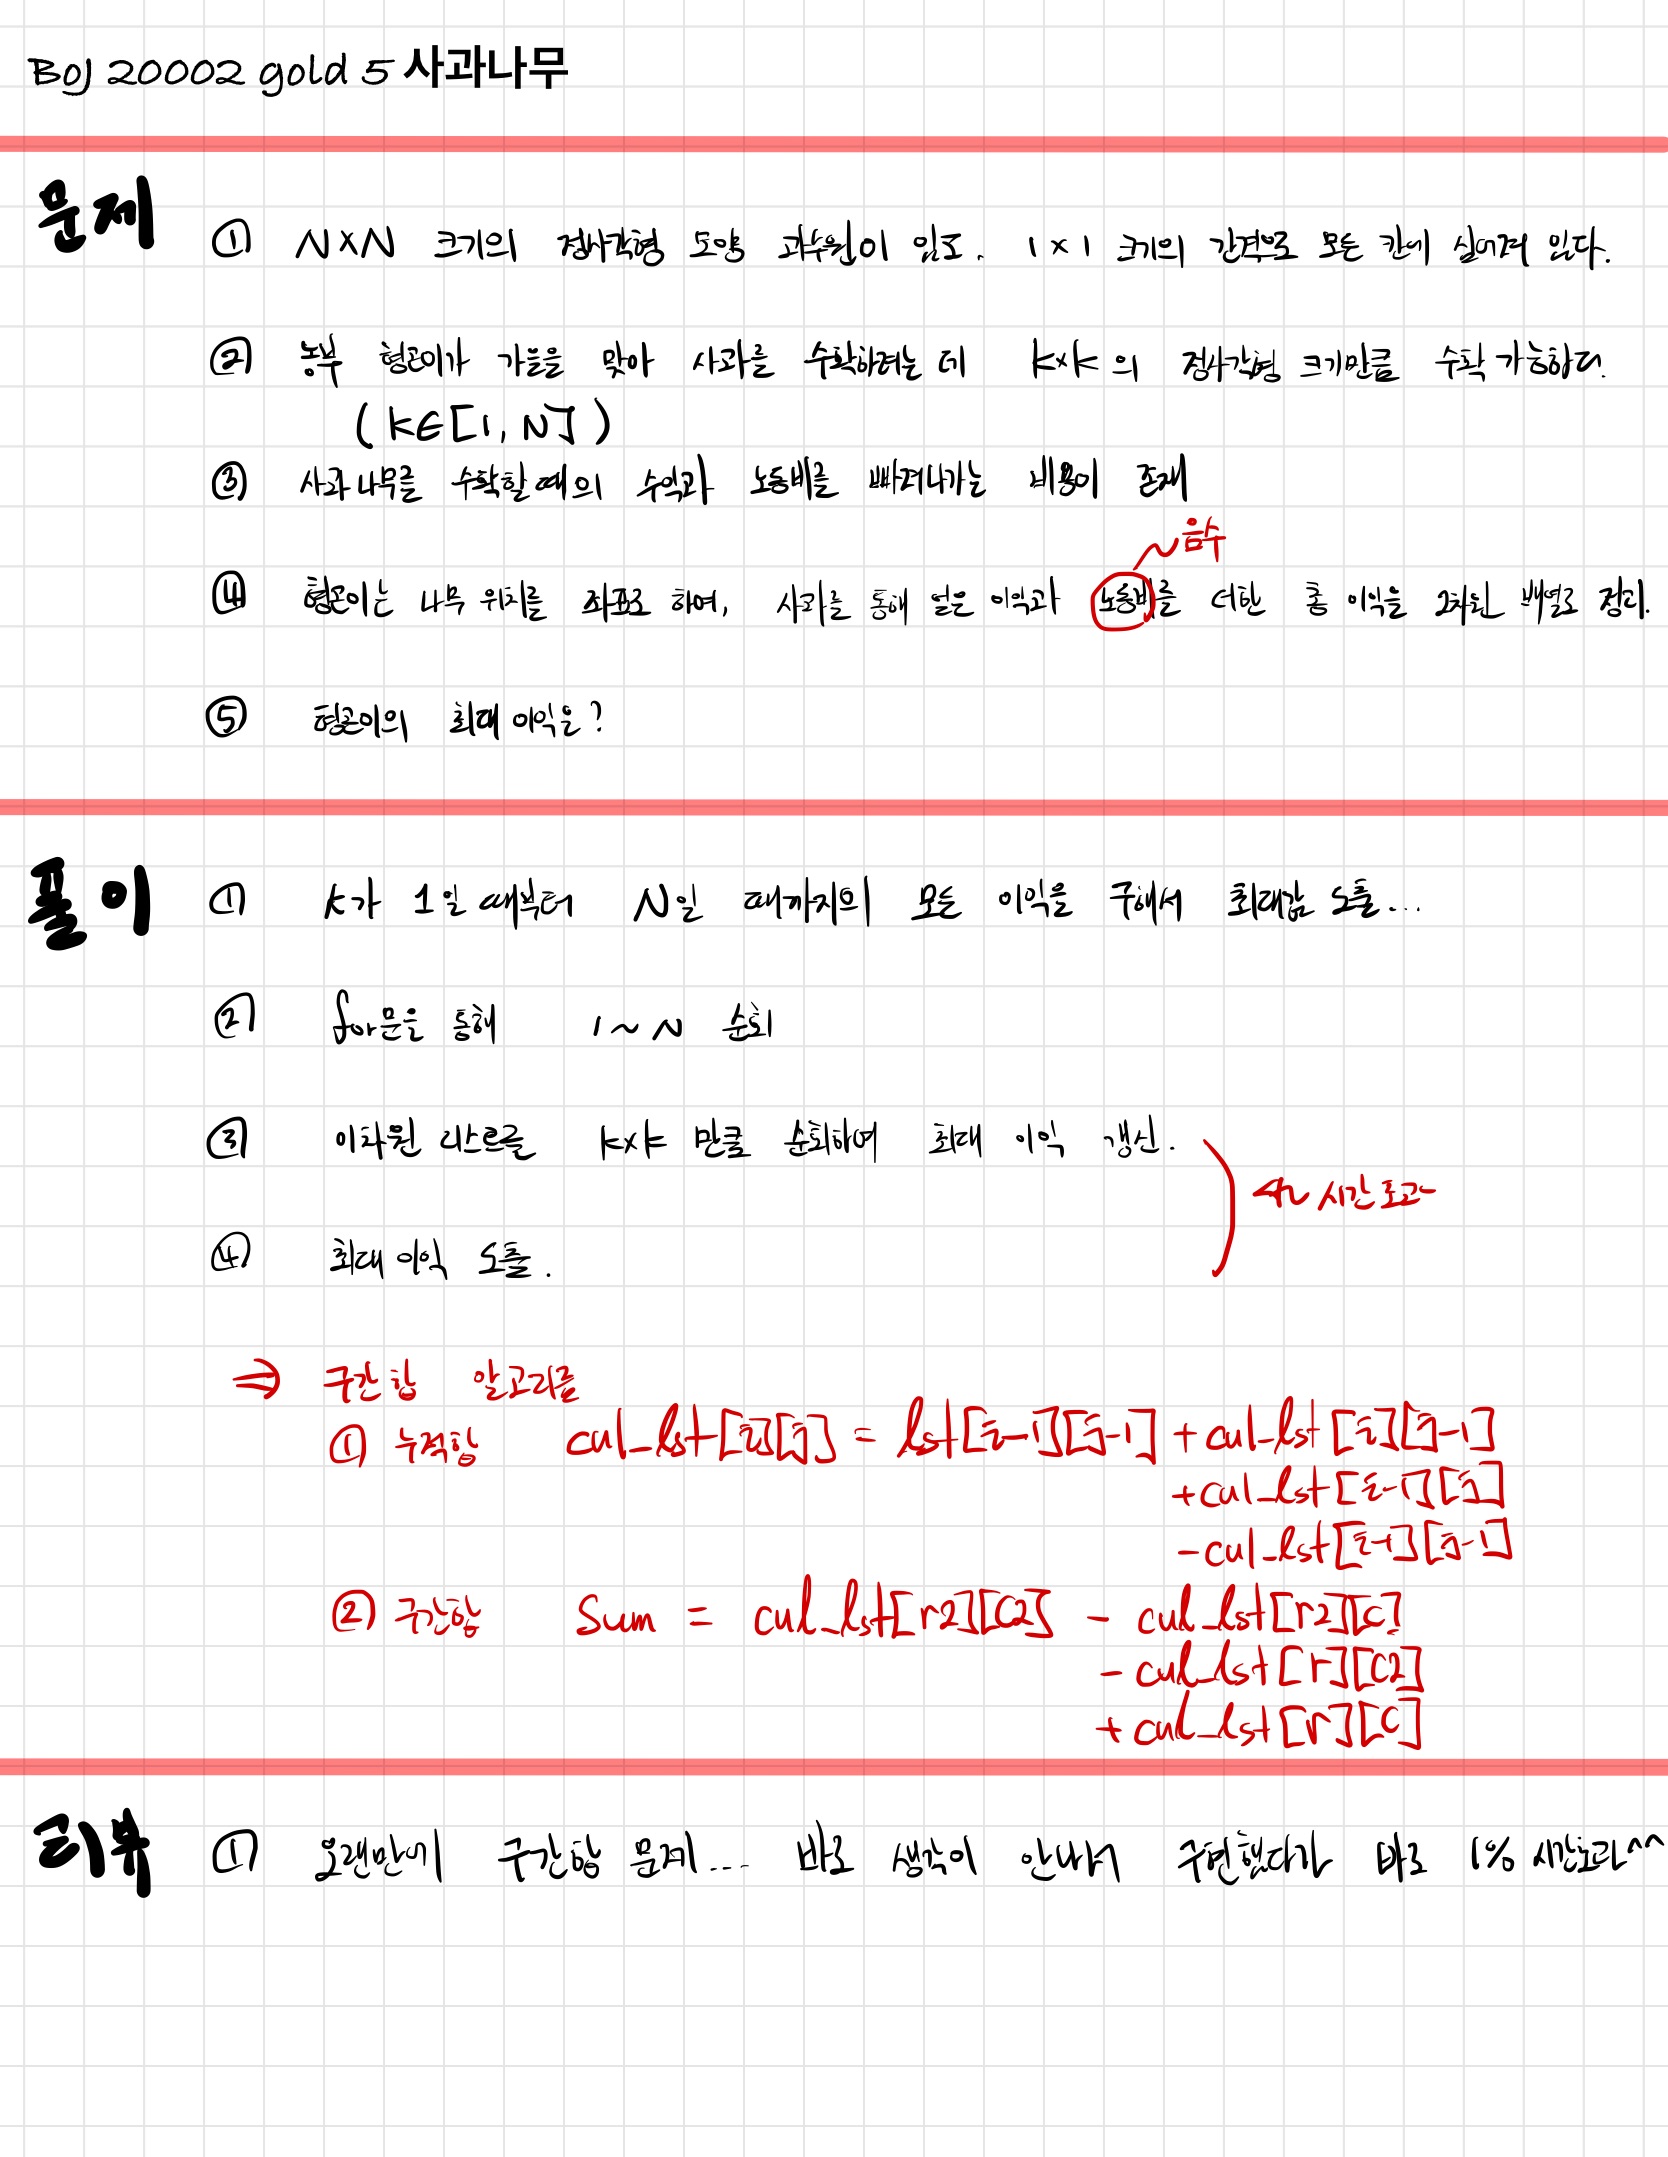 BOJ 20002 gold 5 사과나무
문제
① N×N 크기의 정사각형 모양 과수원이 있고, 1×1 크기의 간격으로 모든 칸에 심어져 있다.
② 농부 형곤이가 가을을 맞아 사과를 수확하려는 데 K×K의 정사각형 크기만큼 수확 가능하다.
(K∈[1, N])
③ 사과나무를 수확할 때의 수익과 노동비를 빠져나가는 비용이 존재
~음수
④ 형곤이는 나무 위치를 좌표로 하여, 사과를 통해 얻은 이익과 노동비를 더한 총 이익을 2차원 배열로 정리.
⑤ 형곤이의 최대 이익은?
풀이
① K가 1일 때부터 N일 때까지의 모든 이익을 구해서 최대값 도출...
② for문을 통해 1~N 순회
③ 이차원 리스트를 K×K 만큼 순회하여 최대 이익 갱신.
시간초과
④ 최대 이익 도출.
⇒ 구간합 알고리즘
① 누적합 cul_lst[i][j] = lst[i-1][j-1] + cul_lst[i][j-1]
+cul_lst[i-1][j]
-cul_lst[i-1][j-1]
② 구간합 Sum = cul_lst[r2][c2] - cul_lst[r2][c]
- cul_lst[r][c2]
+ cul_lst[r][c]
리뷰
① 오랜만에 구간합 문제... 바로 생각이 안나서 구현했다가 바로 1% 시간초과^^